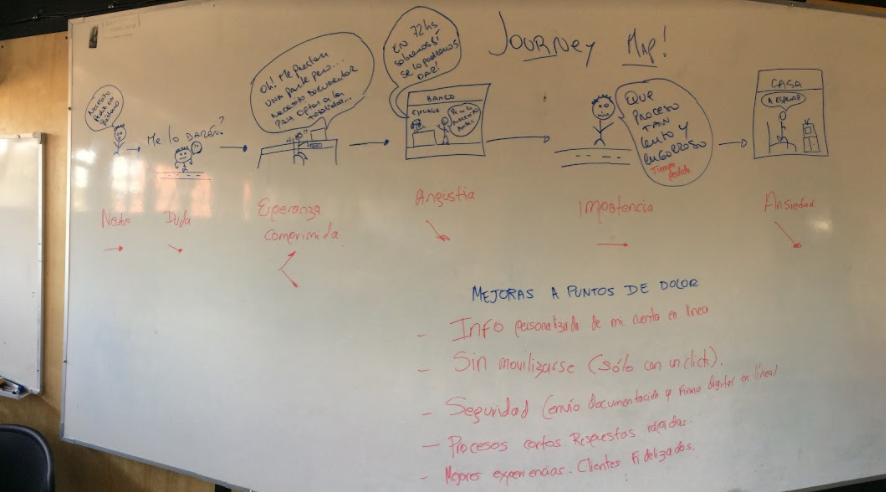 JOURNEY MAP!
Necesito
Me lo DARÁN?
Oh! Me prestan
una parte pero...
necesito documentos
para optar a la
EN 72hs
sabremos si
se lo podemos
DAR!
BANCO
QUE
PROCESO
TAN
lento y
ENGORROSO
Tiempo
perdido
CASA
A ESPERAR
Duda
Esperanza
comprimida
Angustia
Impotencia
Ansiedad
MEJORAS A PUNTOS DE DOLOR
- INFO personalizada de mi cuenta en línea
- Sin movilizarse (sólo con un click).
- Seguridad (envío documentación y firma digital en línea)
- Procesos cortos. Respuestas rápidas.
- Mejores experiencias. Clientes Fidelizados.